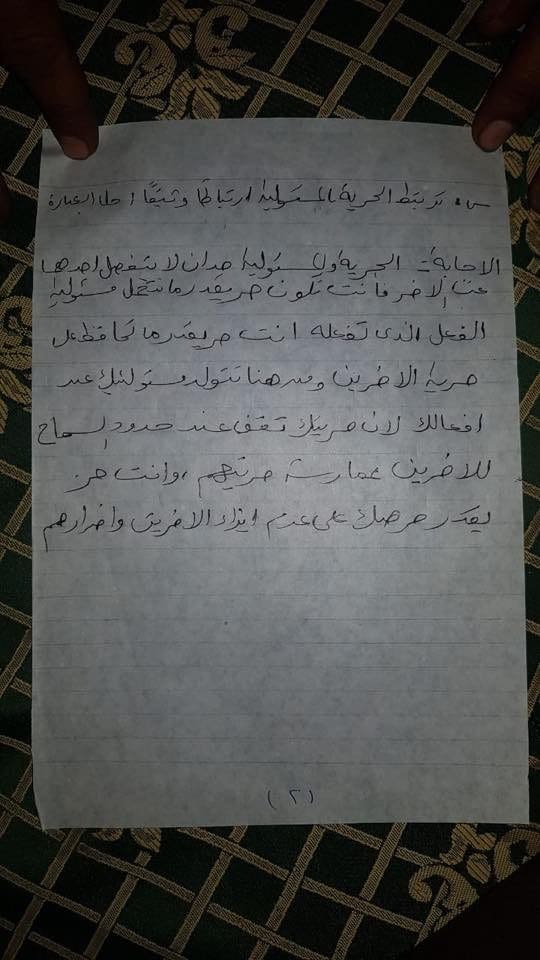 س٥ تربتط الحرية بالمسئولية ارتباطًا وثيقًا احلل العبارة
الاجابة :- الحرية والمسئولية ضدان لا ينفصل احدهما
عن الاخر فانت تكون حر بقدر ما تتحمل مسئولية
الفعل الذى تفعله انت حر بقدر ما تحافظ على
حرية الاخرين ومن هنا تتولد مسئوليتك عن
افعالك لان حريتك تقف عند حدود السماح
للاخرين بممارسة حريتهم ، وانت حر
بقدر حرصك على عدم ايذاء الاخرين واضرارهم
(٢)